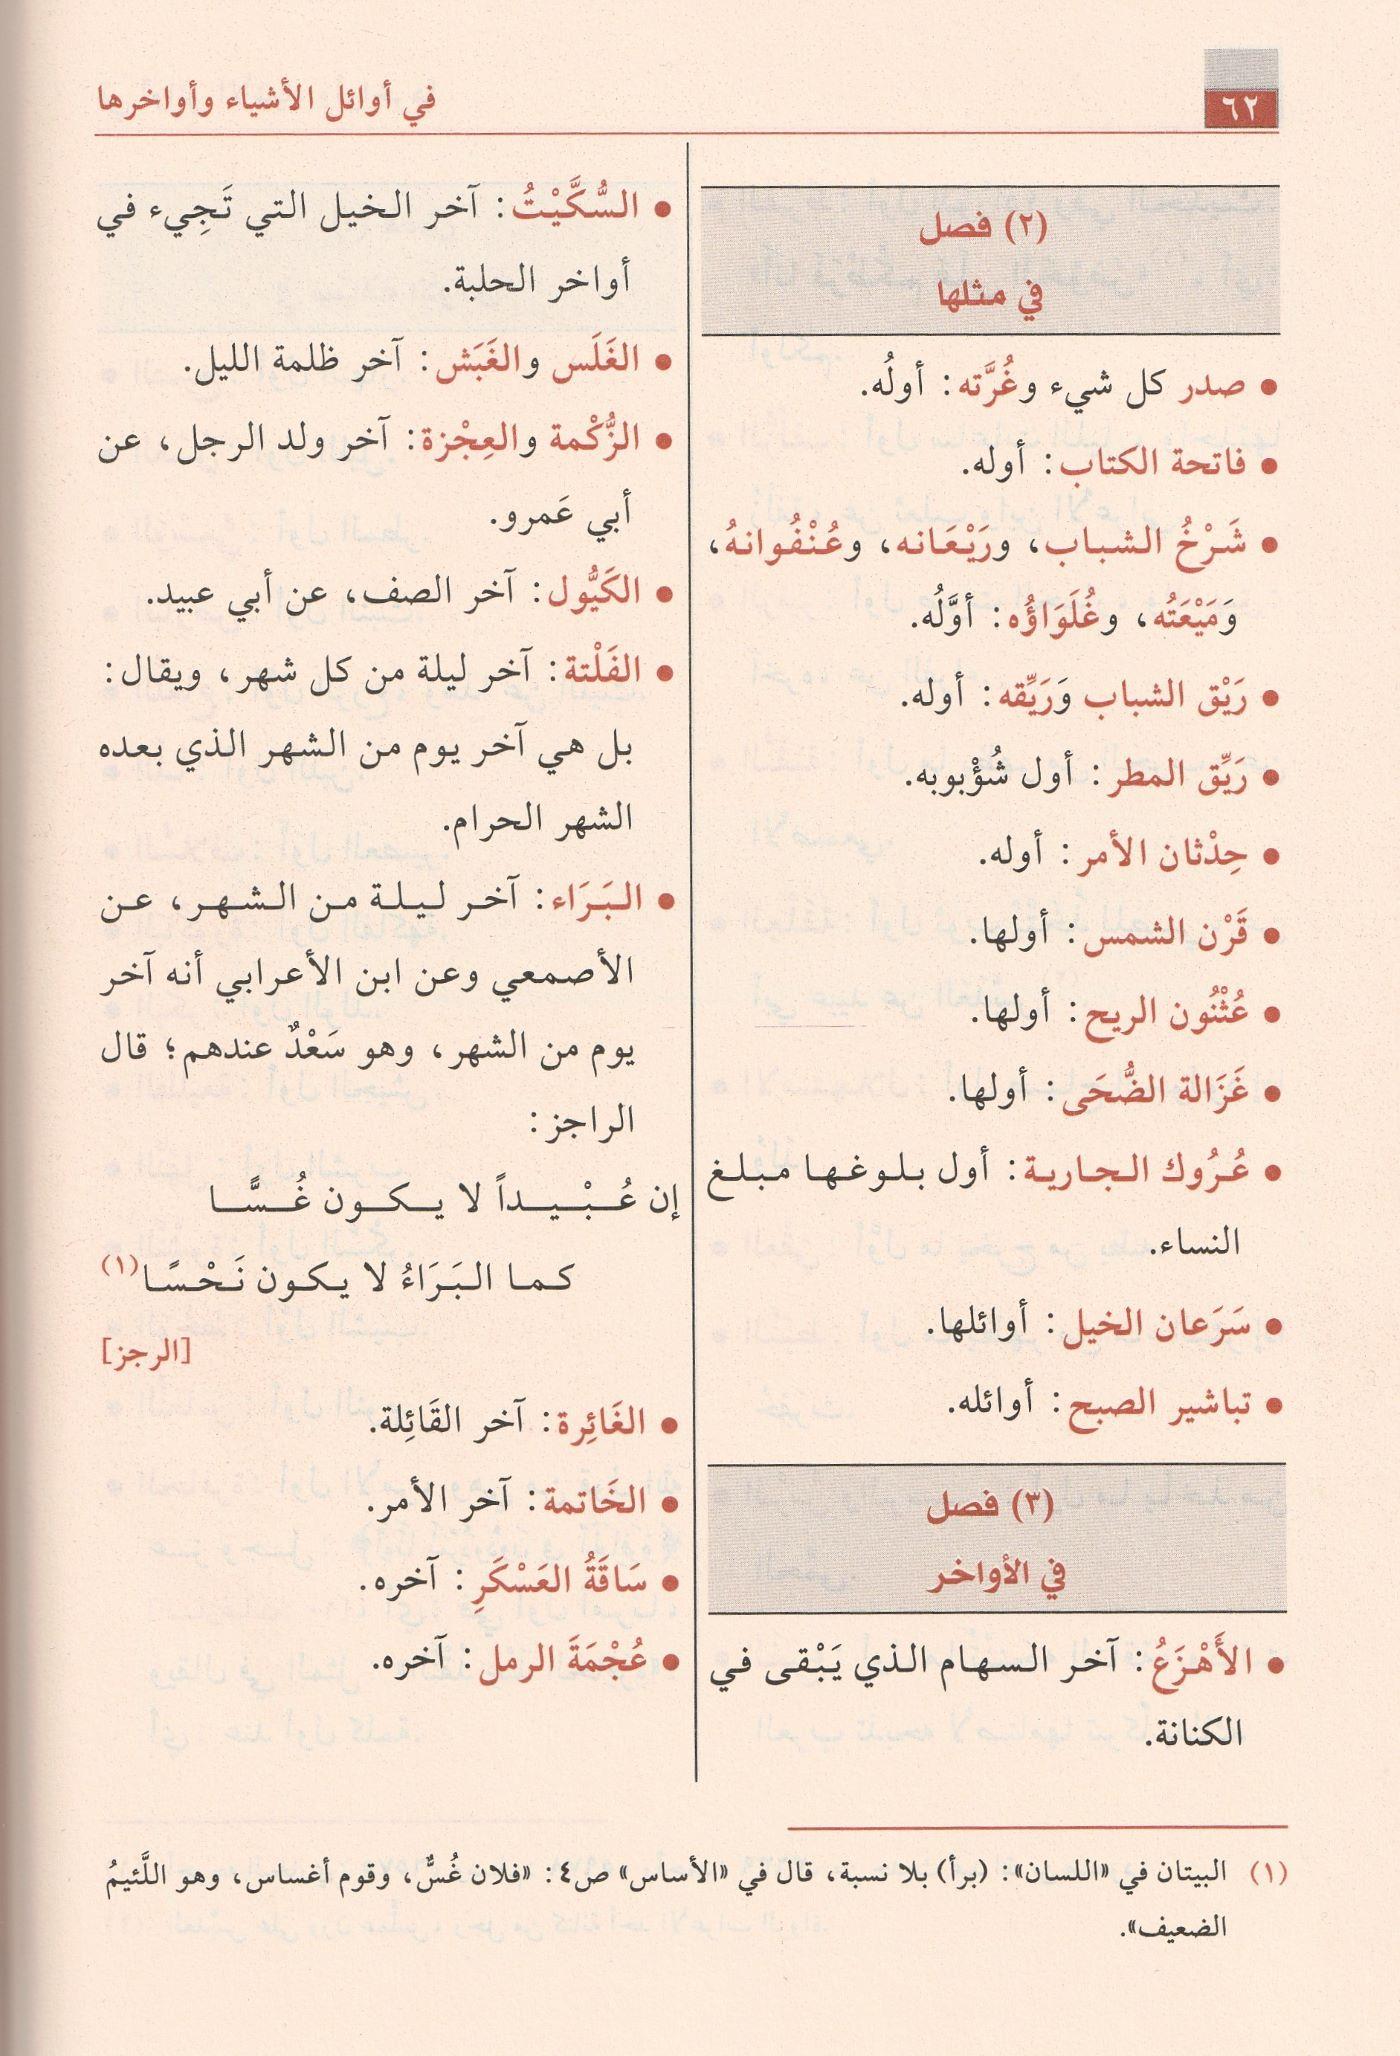 ٦٢
في أوائل الأشياء وأواخرها
(٢) فصل
في مثلها
• صدر كل شيء وغُرَّته: أولُه.
• فاتحة الكتاب: أوله.
• شَرْخُ الشباب، ورَيْعَانه، وعُنْفُوانهُ،
وَمَيْعَتُه، وغُلَوَاؤُه: أوَّلُه.
• رَيْق الشباب وَرَيِّقه: أوله.
• رَيِّق المطر: أول شُؤْبوبه.
• حِدْثان الأمر: أوله.
• قَرْن الشمس: أولها.
• عُثْنُون الريح: أولها.
• غَزَالة الضُّحَى: أولها.
• عُرُوك الجارية: أول بلوغها مبلغ
النساء.
• سَرَعان الخيل: أوائلها.
• تباشير الصبح: أوائله.
(٣) فصل
في الأواخر
• الأَهْزَعُ: آخر السهام الذي يَبْقى في
الكنانة.
• السُّكَّيْتُ: آخر الخيل التي تَجِيء في
أواخر الحلبة.
• الغَلَس والغَبَش: آخر ظلمة الليل.
• الزُّكْمة والعِجْزة: آخر ولد الرجل، عن
أبي عَمرو.
• الكَيُّول: آخر الصف، عن أبي عبيد.
• الفَلْتة: آخر ليلة من كل شهر، ويقال:
بل هي آخر يوم من الشهر الذي بعده
الشهر الحرام.
• البَرَاء: آخر ليلة من الشهر، عن
الأصمعي وعن ابن الأعرابي أنه آخر
يوم من الشهر، وهو سَعْدٌ عندهم؛ قال
الراجز:
إن عُبْيداً لا يكون غُسًّا
كما البَرَاءُ لا يكون نَحْسًا(١)
[الرجز]
• الغَائِرة: آخر القَائِلة.
• الخَاتمة: آخر الأمر.
• سَاقَةُ العَسْكَرِ: آخره.
• عُجْمَةَ الرمل: آخره.
(١) البيتان في «اللسان»: (برأ) بلا نسبة، قال في «الأساس» ص٤: «فلان غُسٌّ، وقوم أغساس، وهو اللَّئيمُ
الضعيف».